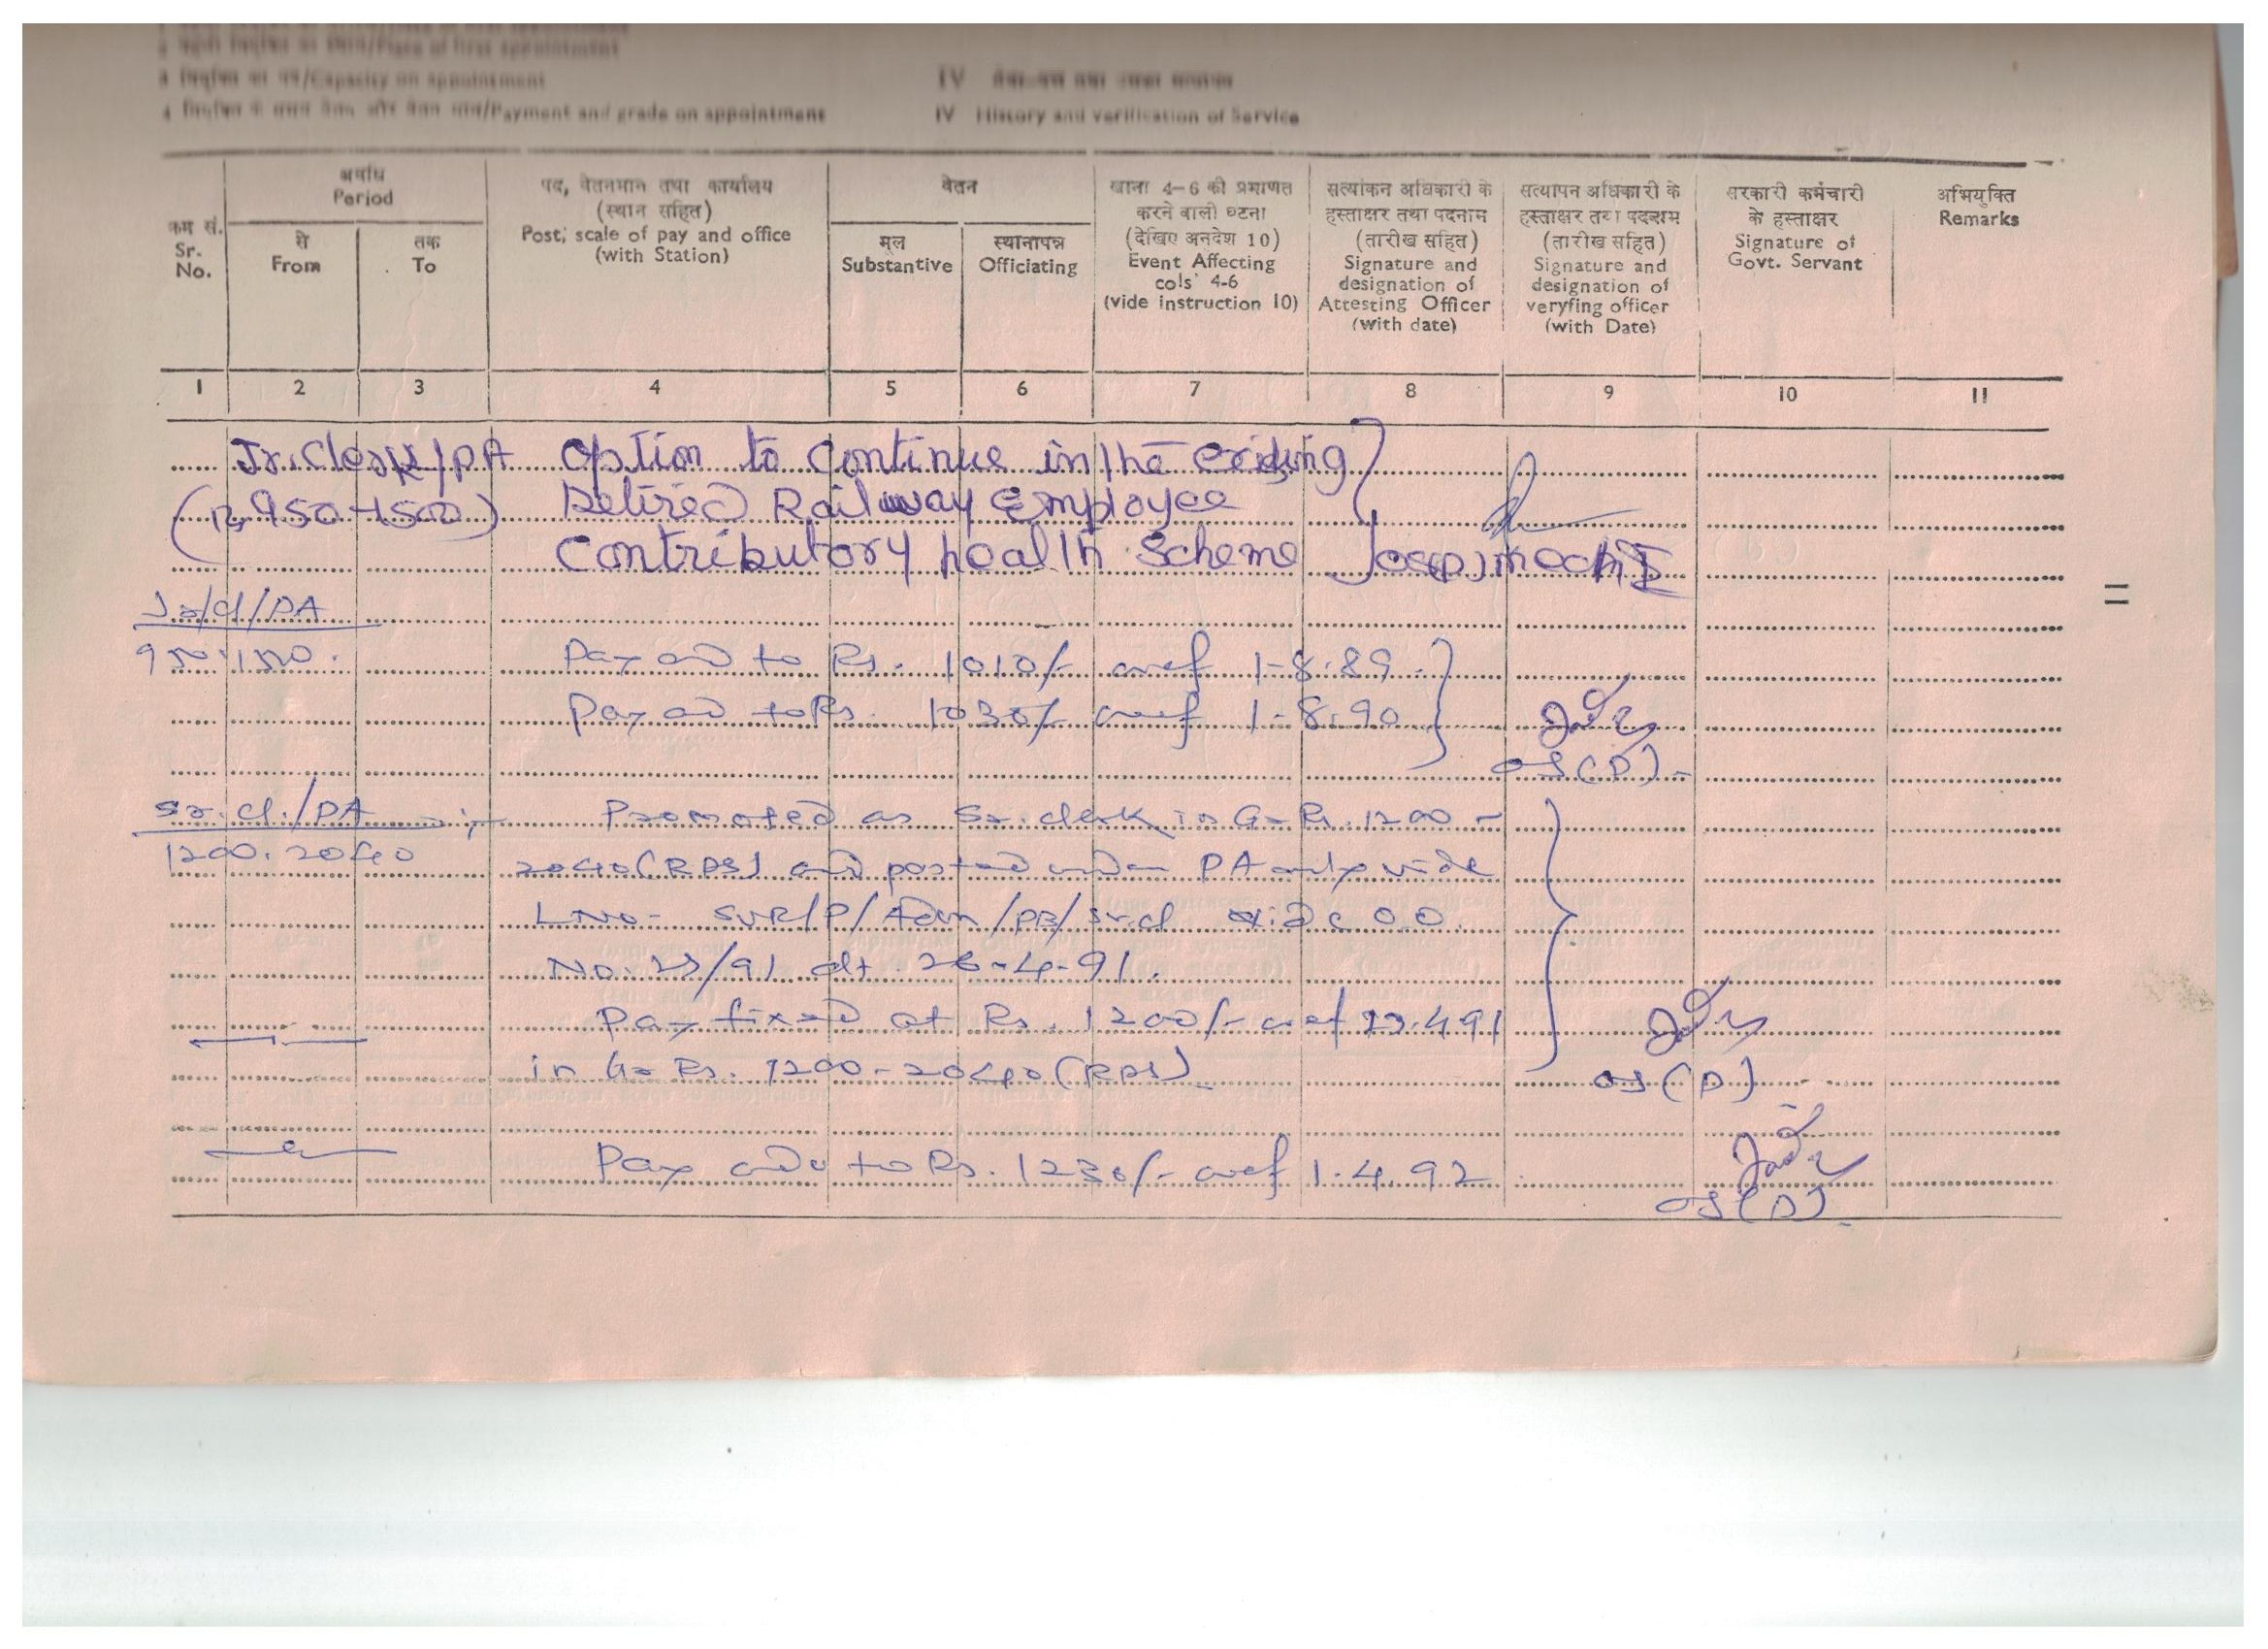 Place of first appointment
3 नियुक्ति का पद/Capacity on appointment
4 नियुक्ति के समय वेतन और वेतन मान/Payment and grade on appointment
IV
IV History and verification of Service
क्रम सं.
Sr.
No.
अवधि
Period
से
From
तक
To
पद, वेतनमान तथा कार्यालय
(स्थान सहित)
Post, scale of pay and office
(with Station)
वेतन
मूल
Substantive
स्थानापन्न
Officiating
खाना 4-6 की प्रमाणत
करने वाली घटना
(देखिए अनदेश 10)
Event Affecting
cols' 4-6
(vide instruction 10)
सत्यांकन अधिकारी के
हस्ताक्षर तथा पदनाम
(तारीख सहित)
Signature and
designation of
Attesting Officer
(with date)
सत्यापन अधिकारी के
हस्ताक्षर तथा पदनाम
(तारीख सहित)
Signature and
designation of
veryfing officer
(with Date)
सरकारी कर्मचारी
के हस्ताक्षर
Signature of
Govt. Servant
अभियुक्ति
Remarks
1 2 3 4 5 6 7 8 9 10 11
Jr. Clerk/PA Option to Continue in the existing
(Rs 950-1500) Retired Railway Employee
Contributory health Scheme
Jr/cl/PA
950-1500. Pay to Rs. 1010/- wef 1-8-89
Pay to Rs. 1030/- wef 1-8-90
OS(P)
Sr. Cl./PA :- Promoted as Sr. clerk in Gr Rs. 1200 -
1200. 2040 2040 (RPS) and posted under PA only vide
L.No- SUR/P/Admn/PB/Sr.cl vide O.O.
No. /91 dt. 26-4-91.
Pay fixed at Rs. 1200/- wef .4.91
in Gr Rs. 1200-2040 (RPS)
OS(P)
Pay to Rs. 1230/- wef 1.4.92
OS(P)